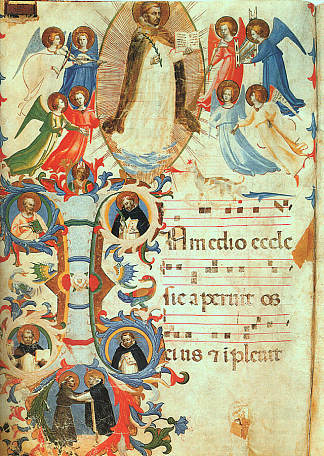 IN medio eccle
sie aperuit os
eius ⁊ īpleuit